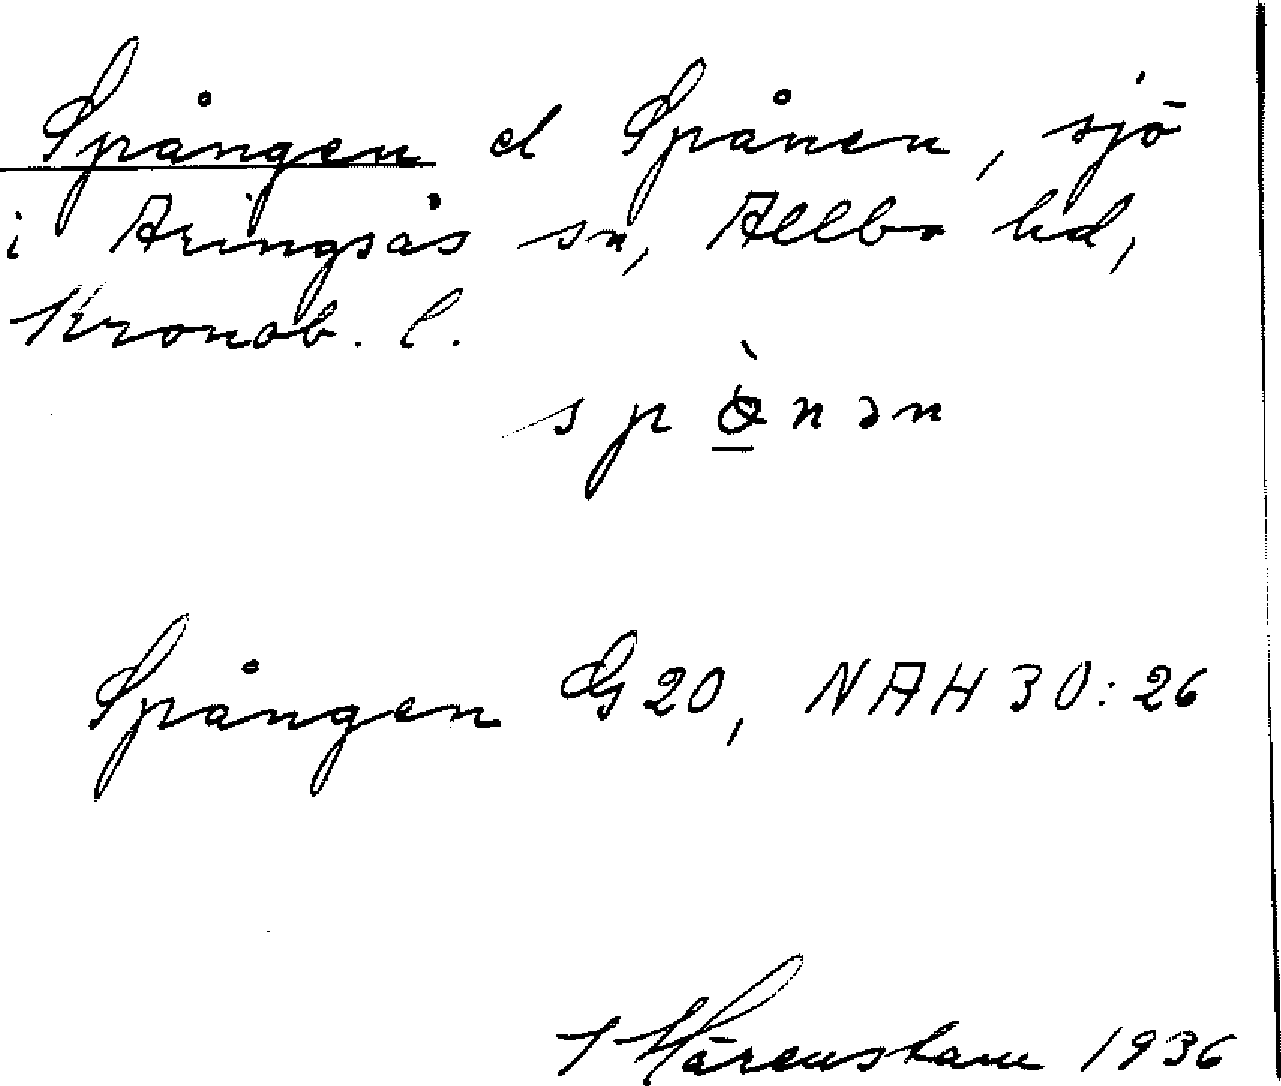 Spången el Spånen, sjö
i Aringsås sn, Allbo hd,
Kronob. l.
Spången G20, NAH 30:26
1936